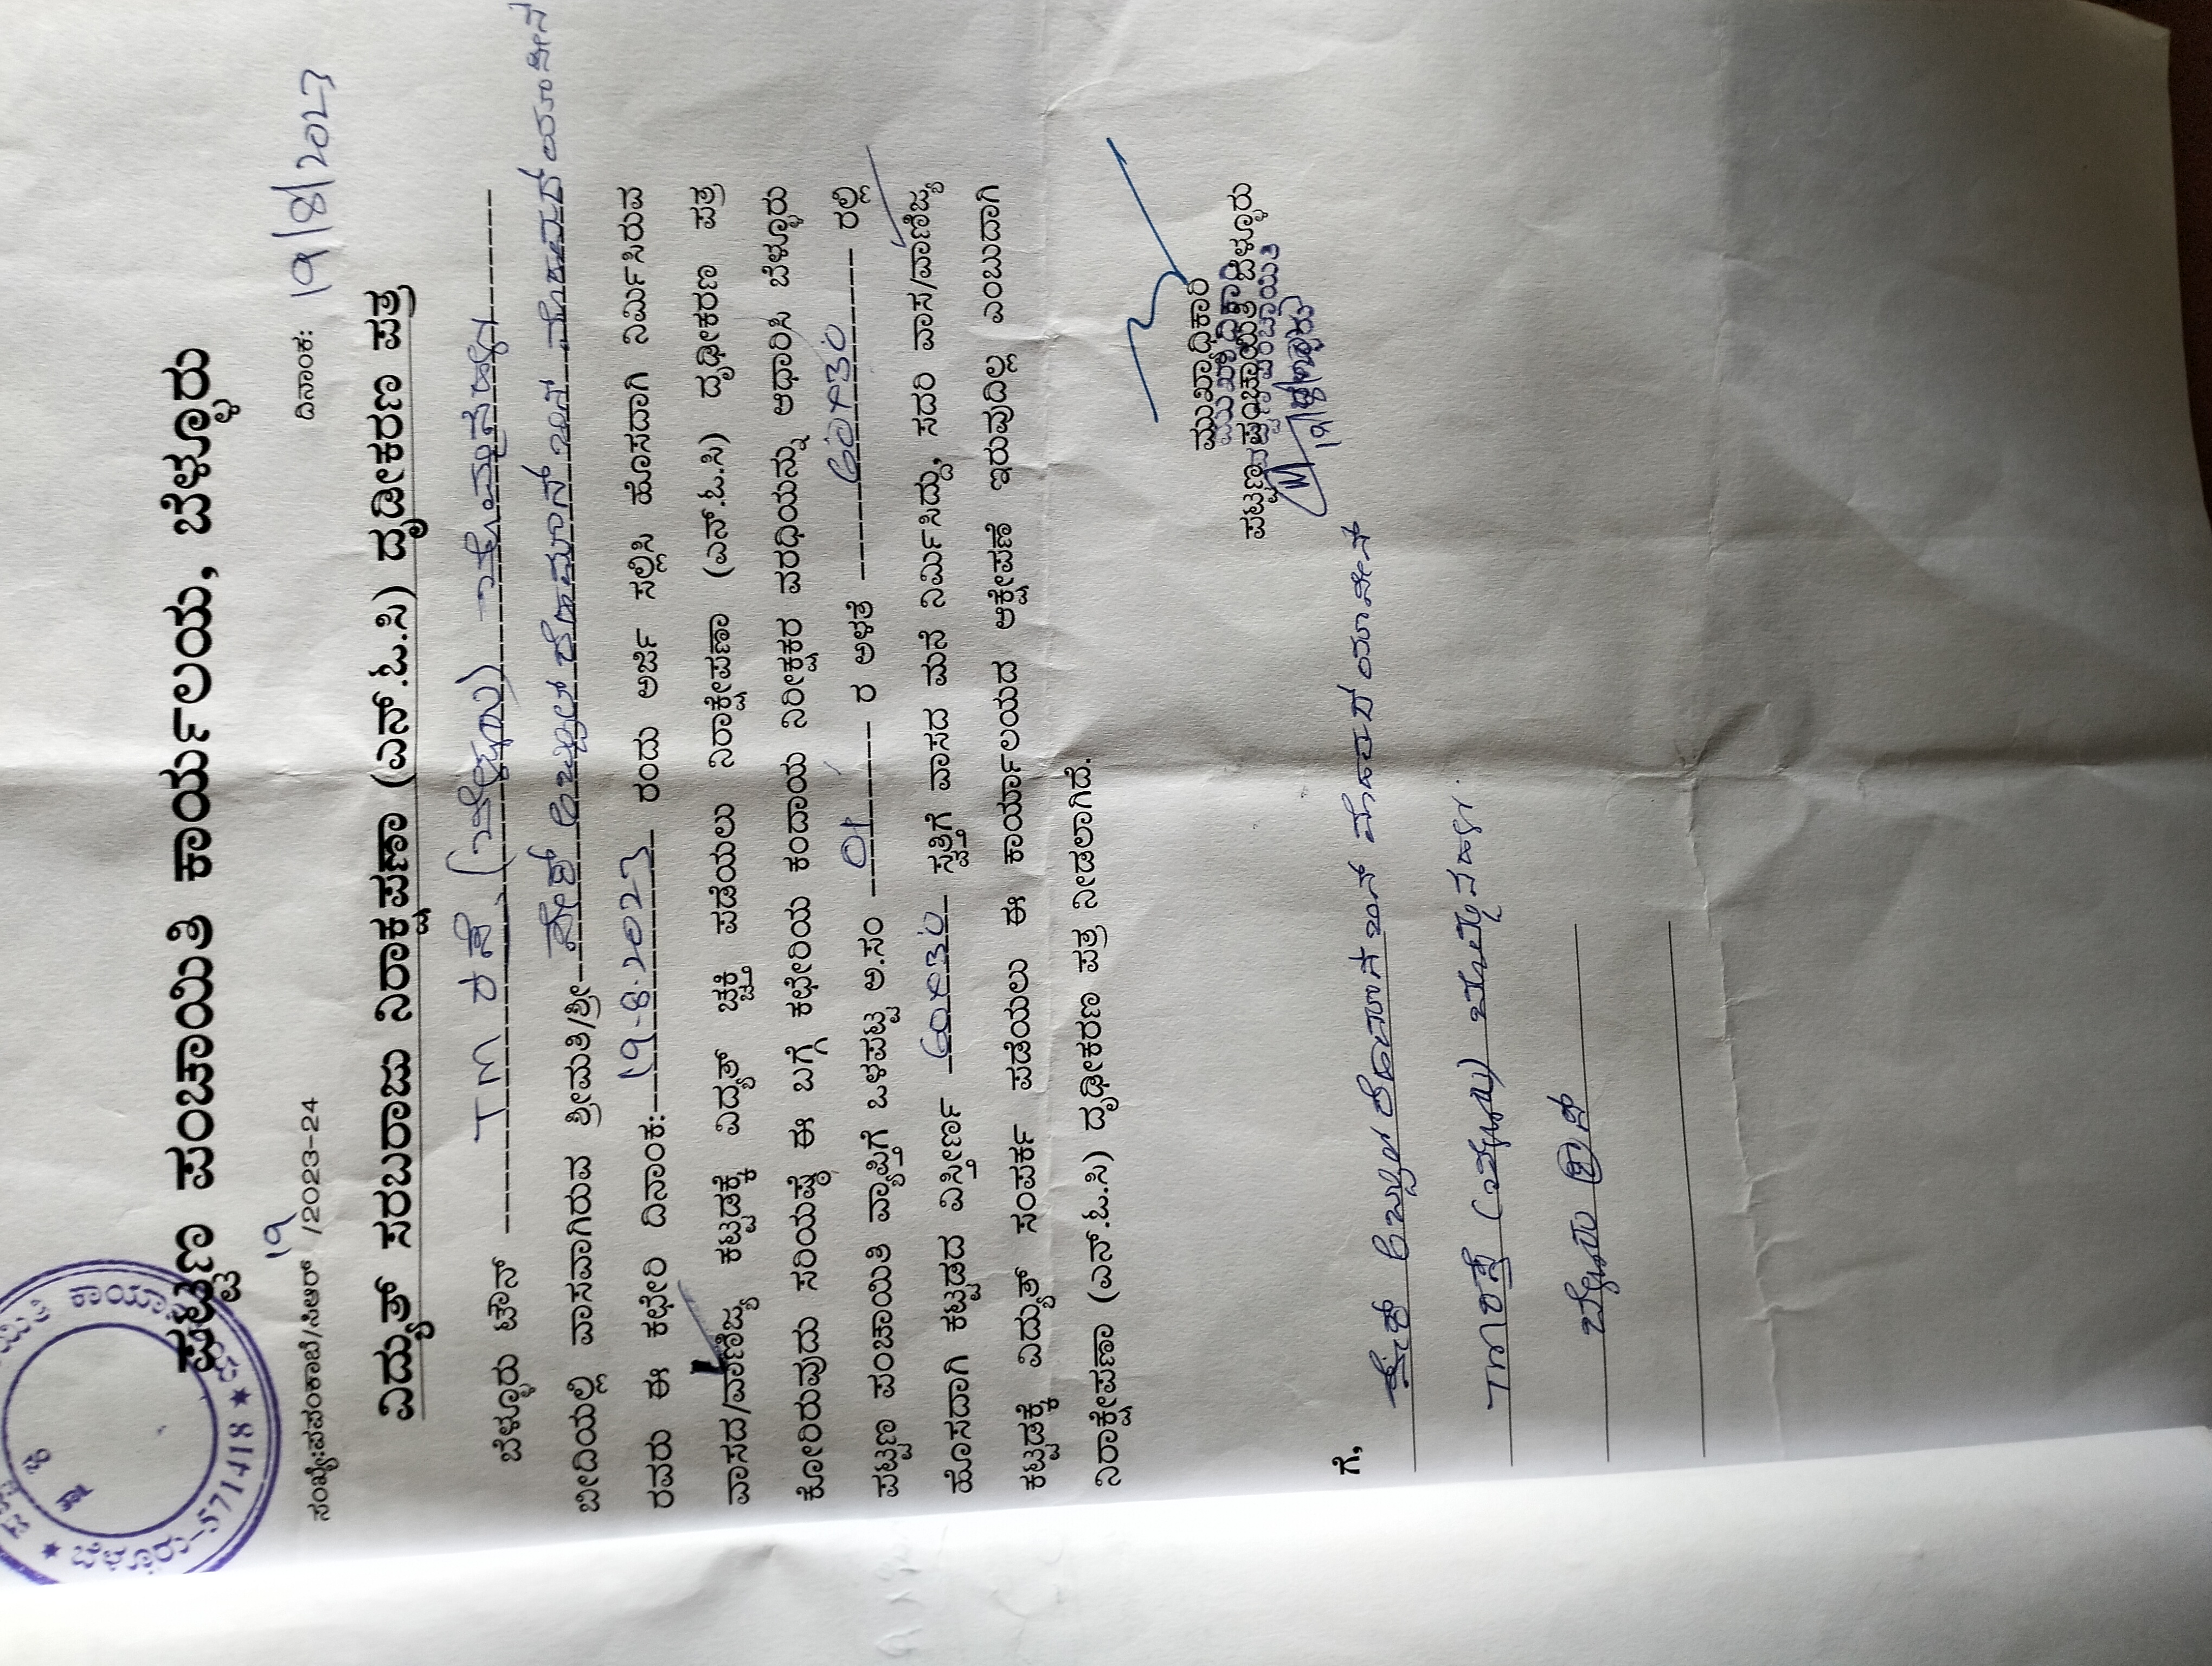 ಪಟ್ಟಣ ಪಂಚಾಯಿತಿ ಕಾರ್ಯಾಲಯ, ಬೆಳ್ಳೂರು
19
ಸಂಖ್ಯೆ:ಪಪಂಕಾಬೆ/ಸಿಆರ್ /2023-24 ದಿನಾಂಕ: 19/8/2023
ವಿದ್ಯುತ್ ಸರಬರಾಜು ನಿರಾಕ್ಷಪಣಾ (ಎನ್.ಓ.ಸಿ) ದೃಢೀಕರಣ ಪತ್ರ
ಬೆಳ್ಳೂರು ಟೌನ್ TM ರಸ್ತೆ
ಬೀದಿಯಲ್ಲಿ ವಾಸವಾಗಿರುವ ಶ್ರೀಮತಿ/ಶ್ರೀ ಅಬ್ದುಲ್ ರೆಹಮಾನ್ ಬಿನ್
ರವರು ಈ ಕಛೇರಿ ದಿನಾಂಕ: 19-8-2023 ರಂದು ಅರ್ಜಿ ಸಲ್ಲಿಸಿ ಹೊಸದಾಗಿ ನಿರ್ಮಿಸಿರುವ
ವಾಸದ/ವಾಣಿಜ್ಯ ಕಟ್ಟಡಕ್ಕೆ ವಿದ್ಯುತ್ ಚ್ಚಕ್ತಿ ಪಡೆಯಲು ನಿರಾಕ್ಷೇಪಣಾ (ಎನ್.ಓ.ಸಿ) ದೃಢೀಕರಣ ಪತ್ರ
ಕೋರಿರುವುದು ಸರಿಯಷ್ಟೆ ಈ ಬಗ್ಗೆ ಕಛೇರಿಯ ಕಂದಾಯ ನಿರೀಕ್ಷಕರ ವರಧಿಯನ್ನು ಆಧಾರಿಸಿ ಬೆಳ್ಳೂರು
ಪಟ್ಟಣ ಪಂಚಾಯಿತಿ ವ್ಯಾಪ್ತಿಗೆ ಒಳಪಟ್ಟ ಅ.ಸಂ 01 ರ ಅಳತೆ 60×30 ರಲ್ಲಿ
ಹೊಸದಾಗಿ ಕಟ್ಟಡದ ವಿಸ್ತೀರ್ಣ 60×30 ಸ್ವತ್ತಿಗೆ ವಾಸದ ಮನೆ ನಿರ್ಮಿಸಿದ್ದು, ಸದರಿ ವಾಸ/ವಾಣಿಜ್ಯ
ಕಟ್ಟಡಕ್ಕೆ ವಿದ್ಯುತ್ ಸಂಪರ್ಕ ಪಡೆಯಲು ಈ ಕಾರ್ಯಾಲಯದ ಆಕ್ಷೇಪಣೆ ಇರುವುದಿಲ್ಲ ಎಂಬುದಾಗಿ
ನಿರಾಕ್ಷೇಪಣಾ (ಎನ್.ಓ.ಸಿ) ದೃಢೀಕರಣ ಪತ್ರ ನೀಡಲಾಗಿದೆ.
ಮುಖ್ಯಾಧಿಕಾರಿ
ಪಟ್ಟಣ ಪಂಚಾಯಿತಿ ಬೆಳ್ಳೂರು
19/8/2023
ಗೆ,
ಅಬ್ದುಲ್ ಬಿನ್
TM ರಸ್ತೆ
ಬೆಳ್ಳೂರು
ಬೆಳ್ಳೂರು-571418